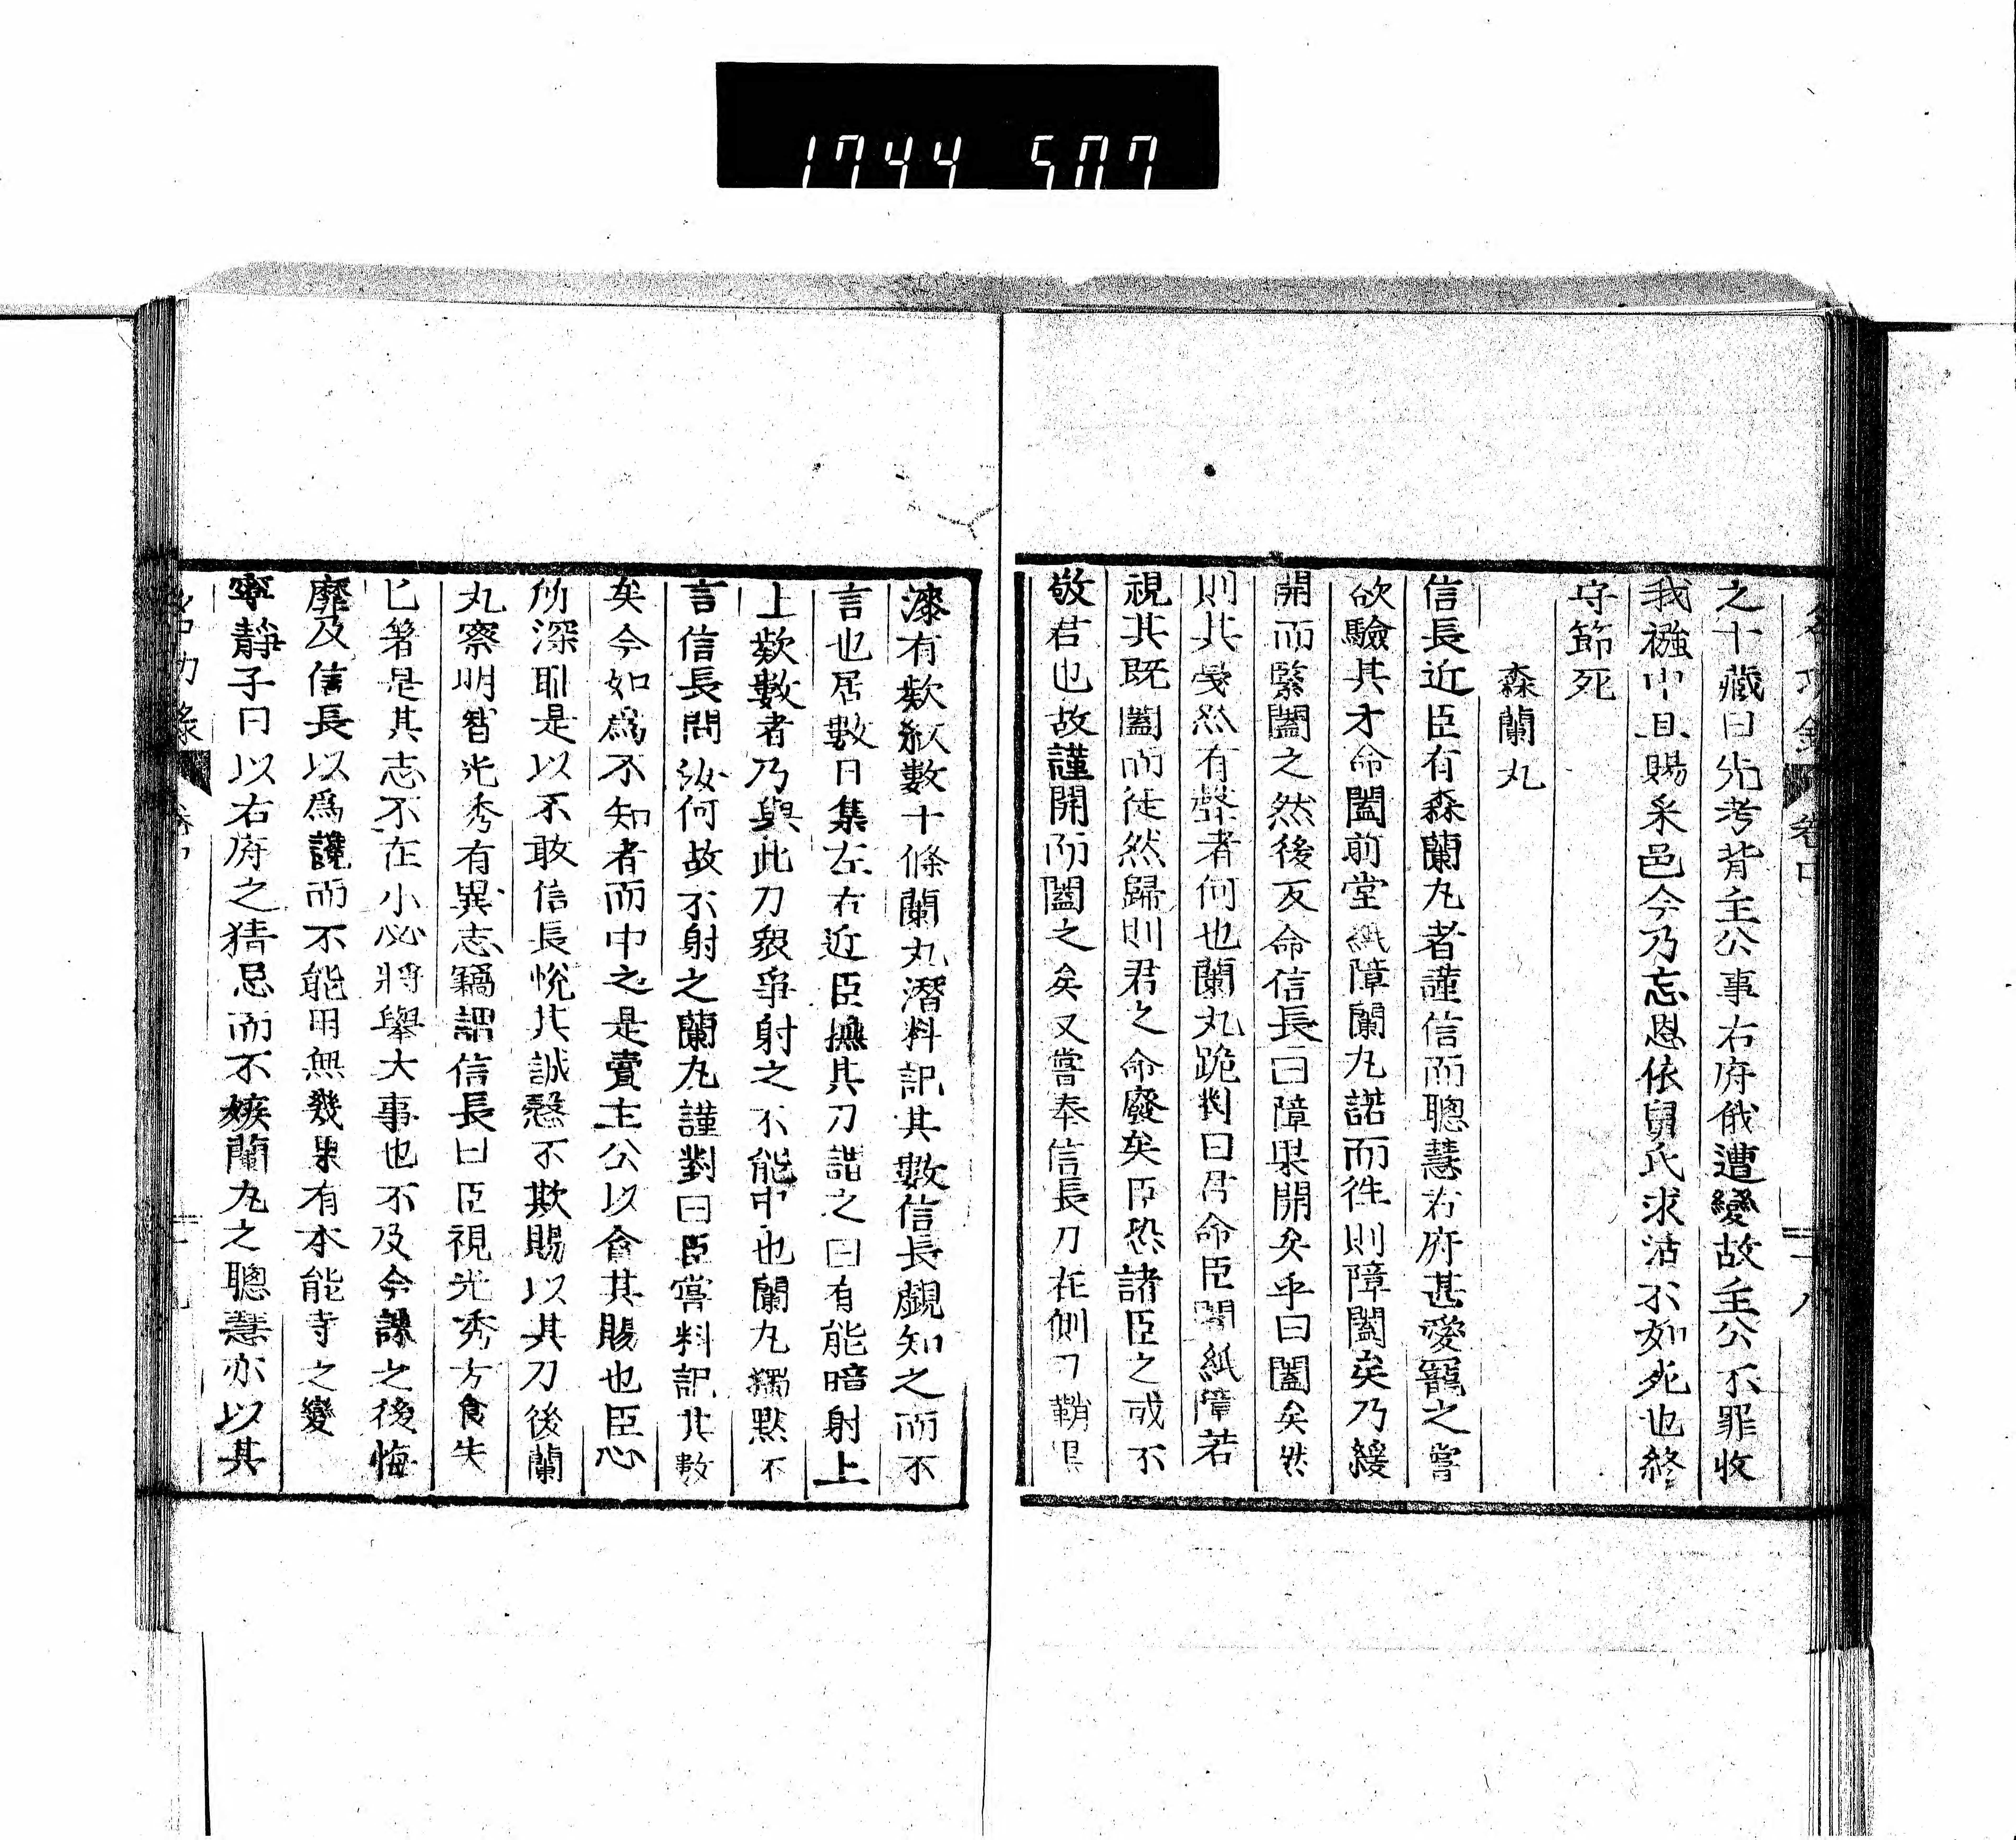 1744 507
之十藏曰先考背主公事右府俄遭變故主公不罪收
我襁中且賜采邑今乃忘恩依舅氏求活不如死也終
守節死
森蘭丸
信長近臣有森蘭丸者謹信而聰慧右府甚愛寵之嘗
欲驗其才命闔前堂紙障蘭丸諾而徃則障闔矣乃緩
開而緊闔之然後反命信長曰障果開矣乎曰闔矣然
則其戞然有聲者何也蘭丸跪對曰君命臣闔紙障若
視其既闔而徒然歸則君之命廢矣臣恐諸臣之或不
敬君也故謹開而闔之矣又嘗奉信長刀在側刀鞘黒
漆有欵紋數十條蘭丸潛料記其數信長覷知之而不
言也居數日集左右近臣撫其刀諧之曰有能暗射上
上欵數者乃與此刀衆爭射之不能中也蘭丸獨默不
言信長問汝何故不射之蘭丸謹對曰臣嘗料記其數
矣今如爲不知者而中之是賣主公以貪其賜也臣心
所深恥是以不敢信長悅其誠慤不欺賜以其刀後蘭
丸察明智光秀有異志竊謂信長曰臣視光秀方食失
匕箸是其志不在小必將舉大事也不及今誅之後悔
靡及信長以爲讒而不能用無幾果有本能寺之變
寧靜子曰以右府之猜忌而不嫉蘭丸之聰慧亦以其